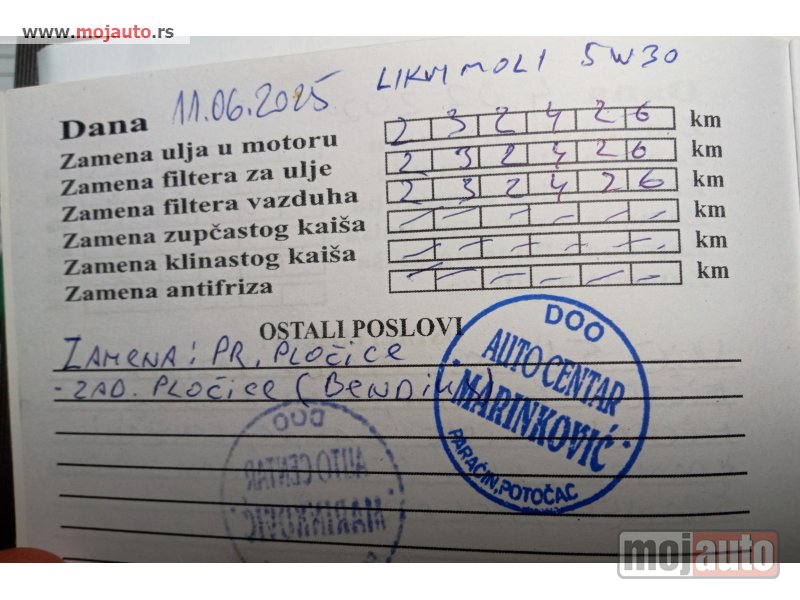 www.mojauto.rs
LIKVI MOLI 5W30
Dana 11.06.2025
Zamena ulja u motoru 2 3 2 4 2 6 km
Zamena filtera za ulje 2 3 2 4 2 6 km
Zamena filtera vazduha 2 3 2 4 2 6 km
Zamena zupčastog kaiša km
Zamena klinastog kaiša km
Zamena antifriza km
OSTALI POSLOVI
ZAMENA: PR. PLOČICE
- ZAD. PLOČICE (BENDIUX)
DOO
AUTO CENTAR
MARINKOVIĆ
PARAĆIN, POTOČAC
DOO
AUTO CENTAR
MARINKOVIĆ
mojauto